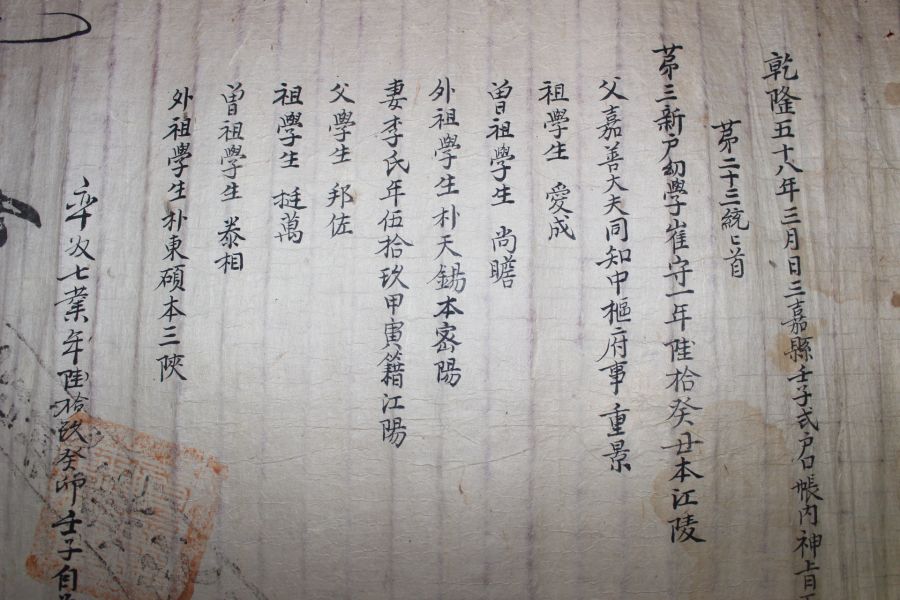 乾隆五十八年三月日三嘉縣壬子式戶口帳內神旨
第二十三統〻首
第三新戶幼學崔守一年陸拾癸丑本江陵
父嘉善大夫同知中樞府事 重景
祖學生 愛成
曾祖學生 尚瞻
外祖學生朴天錫本密陽
妻李氏年伍拾玖甲寅籍江陽
父學生 邦佐
祖學生 挺萬
曾祖學生 泰相
外祖學生朴東碩本三陜
率奴七業年陸拾玖癸卯壬子自